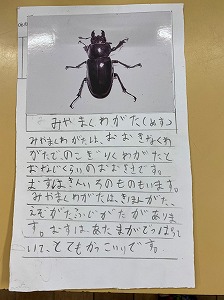 みやまくわがた(めす)
みやまくわがたは、おおきなくわ
がたで、のこぎりくわがたと
おなじくらいのおおきさです。
むすはきんいろのものもいます。
みやまくわがたは、きほんがた、
えぞがた、ふじがたがありま
す。おすは、あたまがでっぱって
いて、とてもかっこいいです。